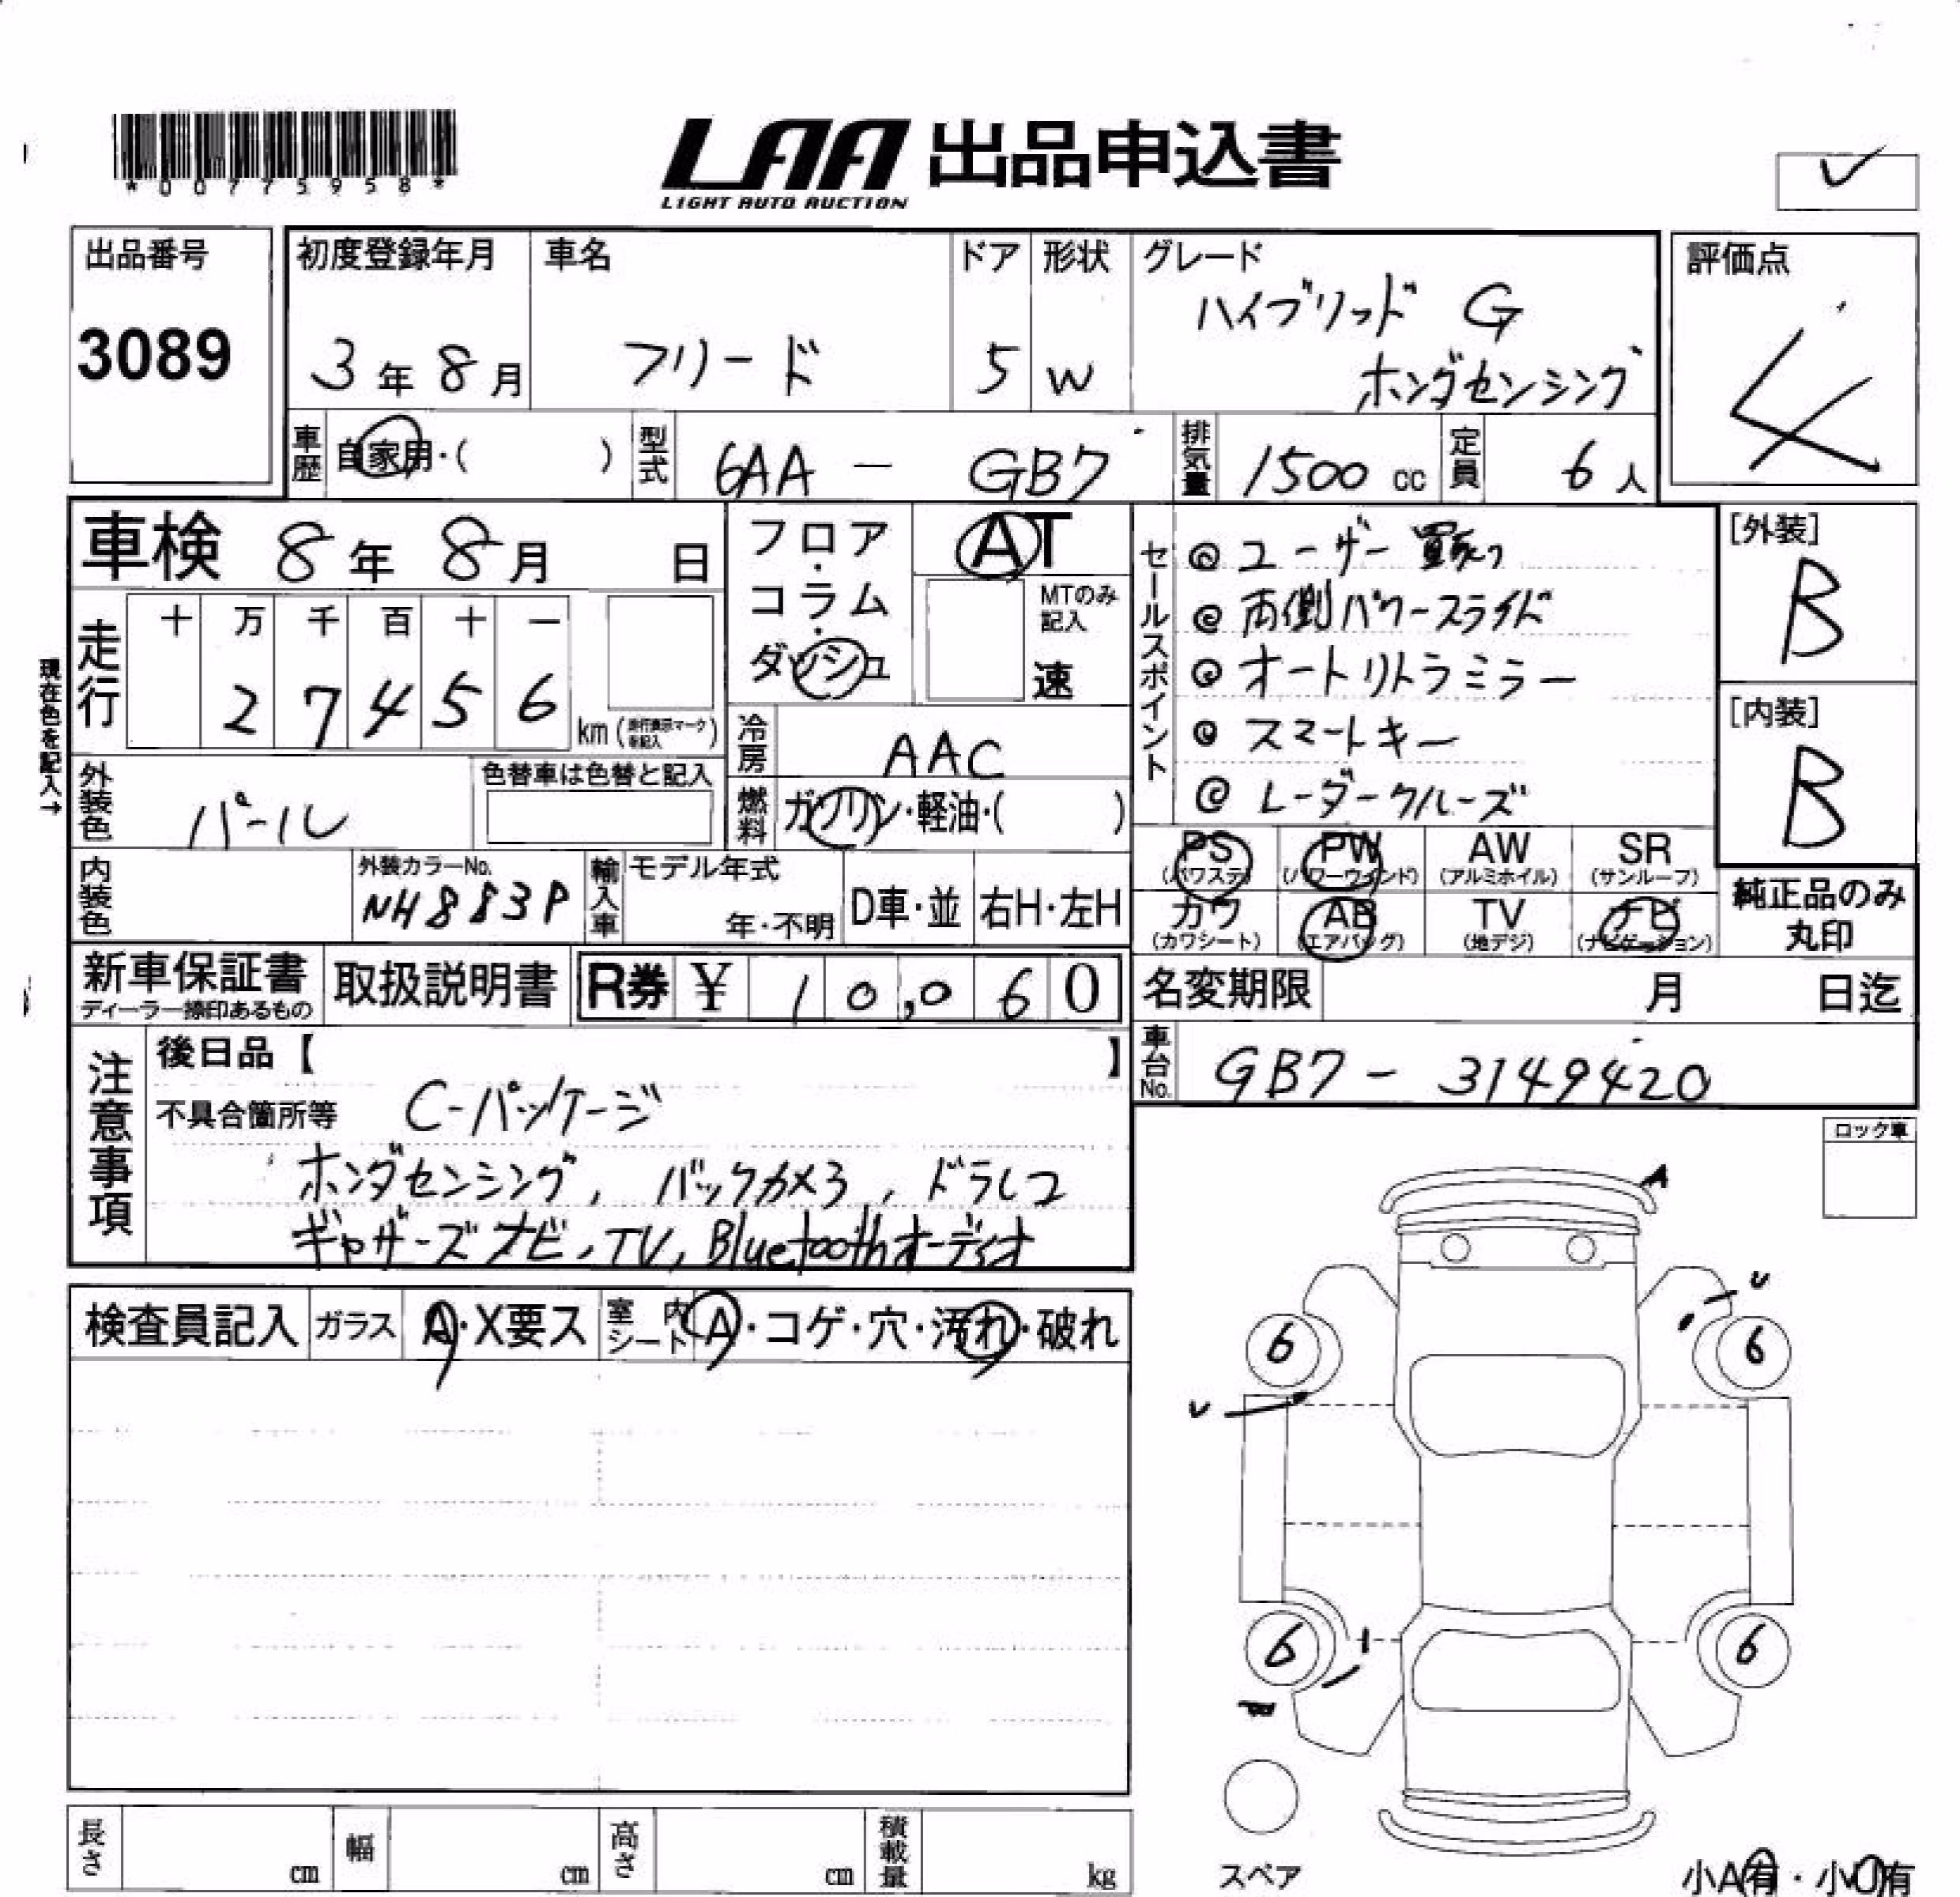 *00775958*
LAA 出品申込書
LIGHT AUTO AUCTION
出品番号
3089
初度登録年月
3年8月
車名
フリード
ドア
5
形状
W
グレード
ハイブリッド G
ホンダセンシング
評価点
4
車歴
自家用・( )
型式
6AA - GB7
排気量
1500 cc
定員
6人
車検 8年 8月 日
フロア・コラム・ダッシュ
AT
MTのみ記入
速
セールスポイント
◎ユーザー買取り
◎両側パワースライド
◎オートリトラミラー
◎スマートキー
◎レーダークルーズ
[外装]
B
[内装]
B
現在色を記入→
走行
十 万 千 百 十 一
2 7 4 5 6
km
冷房
AAC
燃料
ガソリン・軽油・( )
外装色
パール
色替車は色替と記入
内装色
外装カラーNo.
NH883P
輸入車
モデル年式
年・不明
D車・並
右H・左H
PS
(パワステ)
PW
(パワーウインド)
AW
(アルミホイル)
SR
(サンルーフ)
カワ
(カワシート)
AB
(エアバッグ)
TV
(地デジ)
ナビ
(ナビゲーション)
純正品のみ
丸印
新車保証書
ディーラー捺印あるもの
取扱説明書
R券 ¥ 10,060
名変期限 月 日迄
車台No.
GB7 - 3149420
注意事項
後日品【 】
不具合箇所等 C-パッケージ
ホンダセンシング, バックカメラ, ドラレコ
ギャザーズナビ, TV, Bluetoothオーディオ
ロック車
A
検査員記入
ガラス
A・X要ス
室内シート
A・コゲ・穴・汚れ・破れ
6
6
6
6
長さ cm
幅 cm
高さ cm
積載量 kg
スペア
小A有・小U有